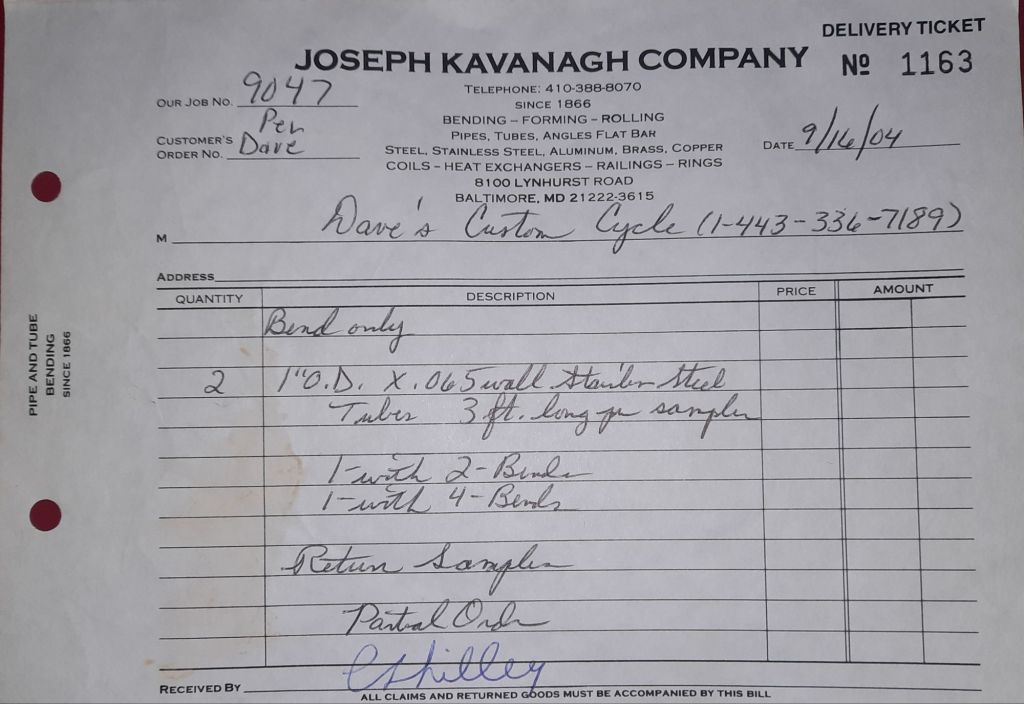 DELIVERY TICKET
JOSEPH KAVANAGH COMPANY Nº 1163
TELEPHONE: 410-388-8070
SINCE 1866
BENDING – FORMING – ROLLING
PIPES, TUBES, ANGLES FLAT BAR
STEEL, STAINLESS STEEL, ALUMINUM, BRASS, COPPER
COILS – HEAT EXCHANGERS – RAILINGS – RINGS
8100 LYNHURST ROAD
BALTIMORE, MD 21222-3615
OUR JOB NO. 9047
CUSTOMER'S ORDER NO. Per Dave
DATE 9/16/04
M Dave's Custom Cycle (1-443-336-7189)
ADDRESS
QUANTITY DESCRIPTION PRICE AMOUNT
Bend only
2 1" O.D. X .065 wall Stainless Steel
Tubes 3 ft. long per samples
1-with 2-Bends
1-with 4-Bends
Return Samples
Partial Order
RECEIVED BY
ALL CLAIMS AND RETURNED GOODS MUST BE ACCOMPANIED BY THIS BILL
PIPE AND TUBE
BENDING
SINCE 1866